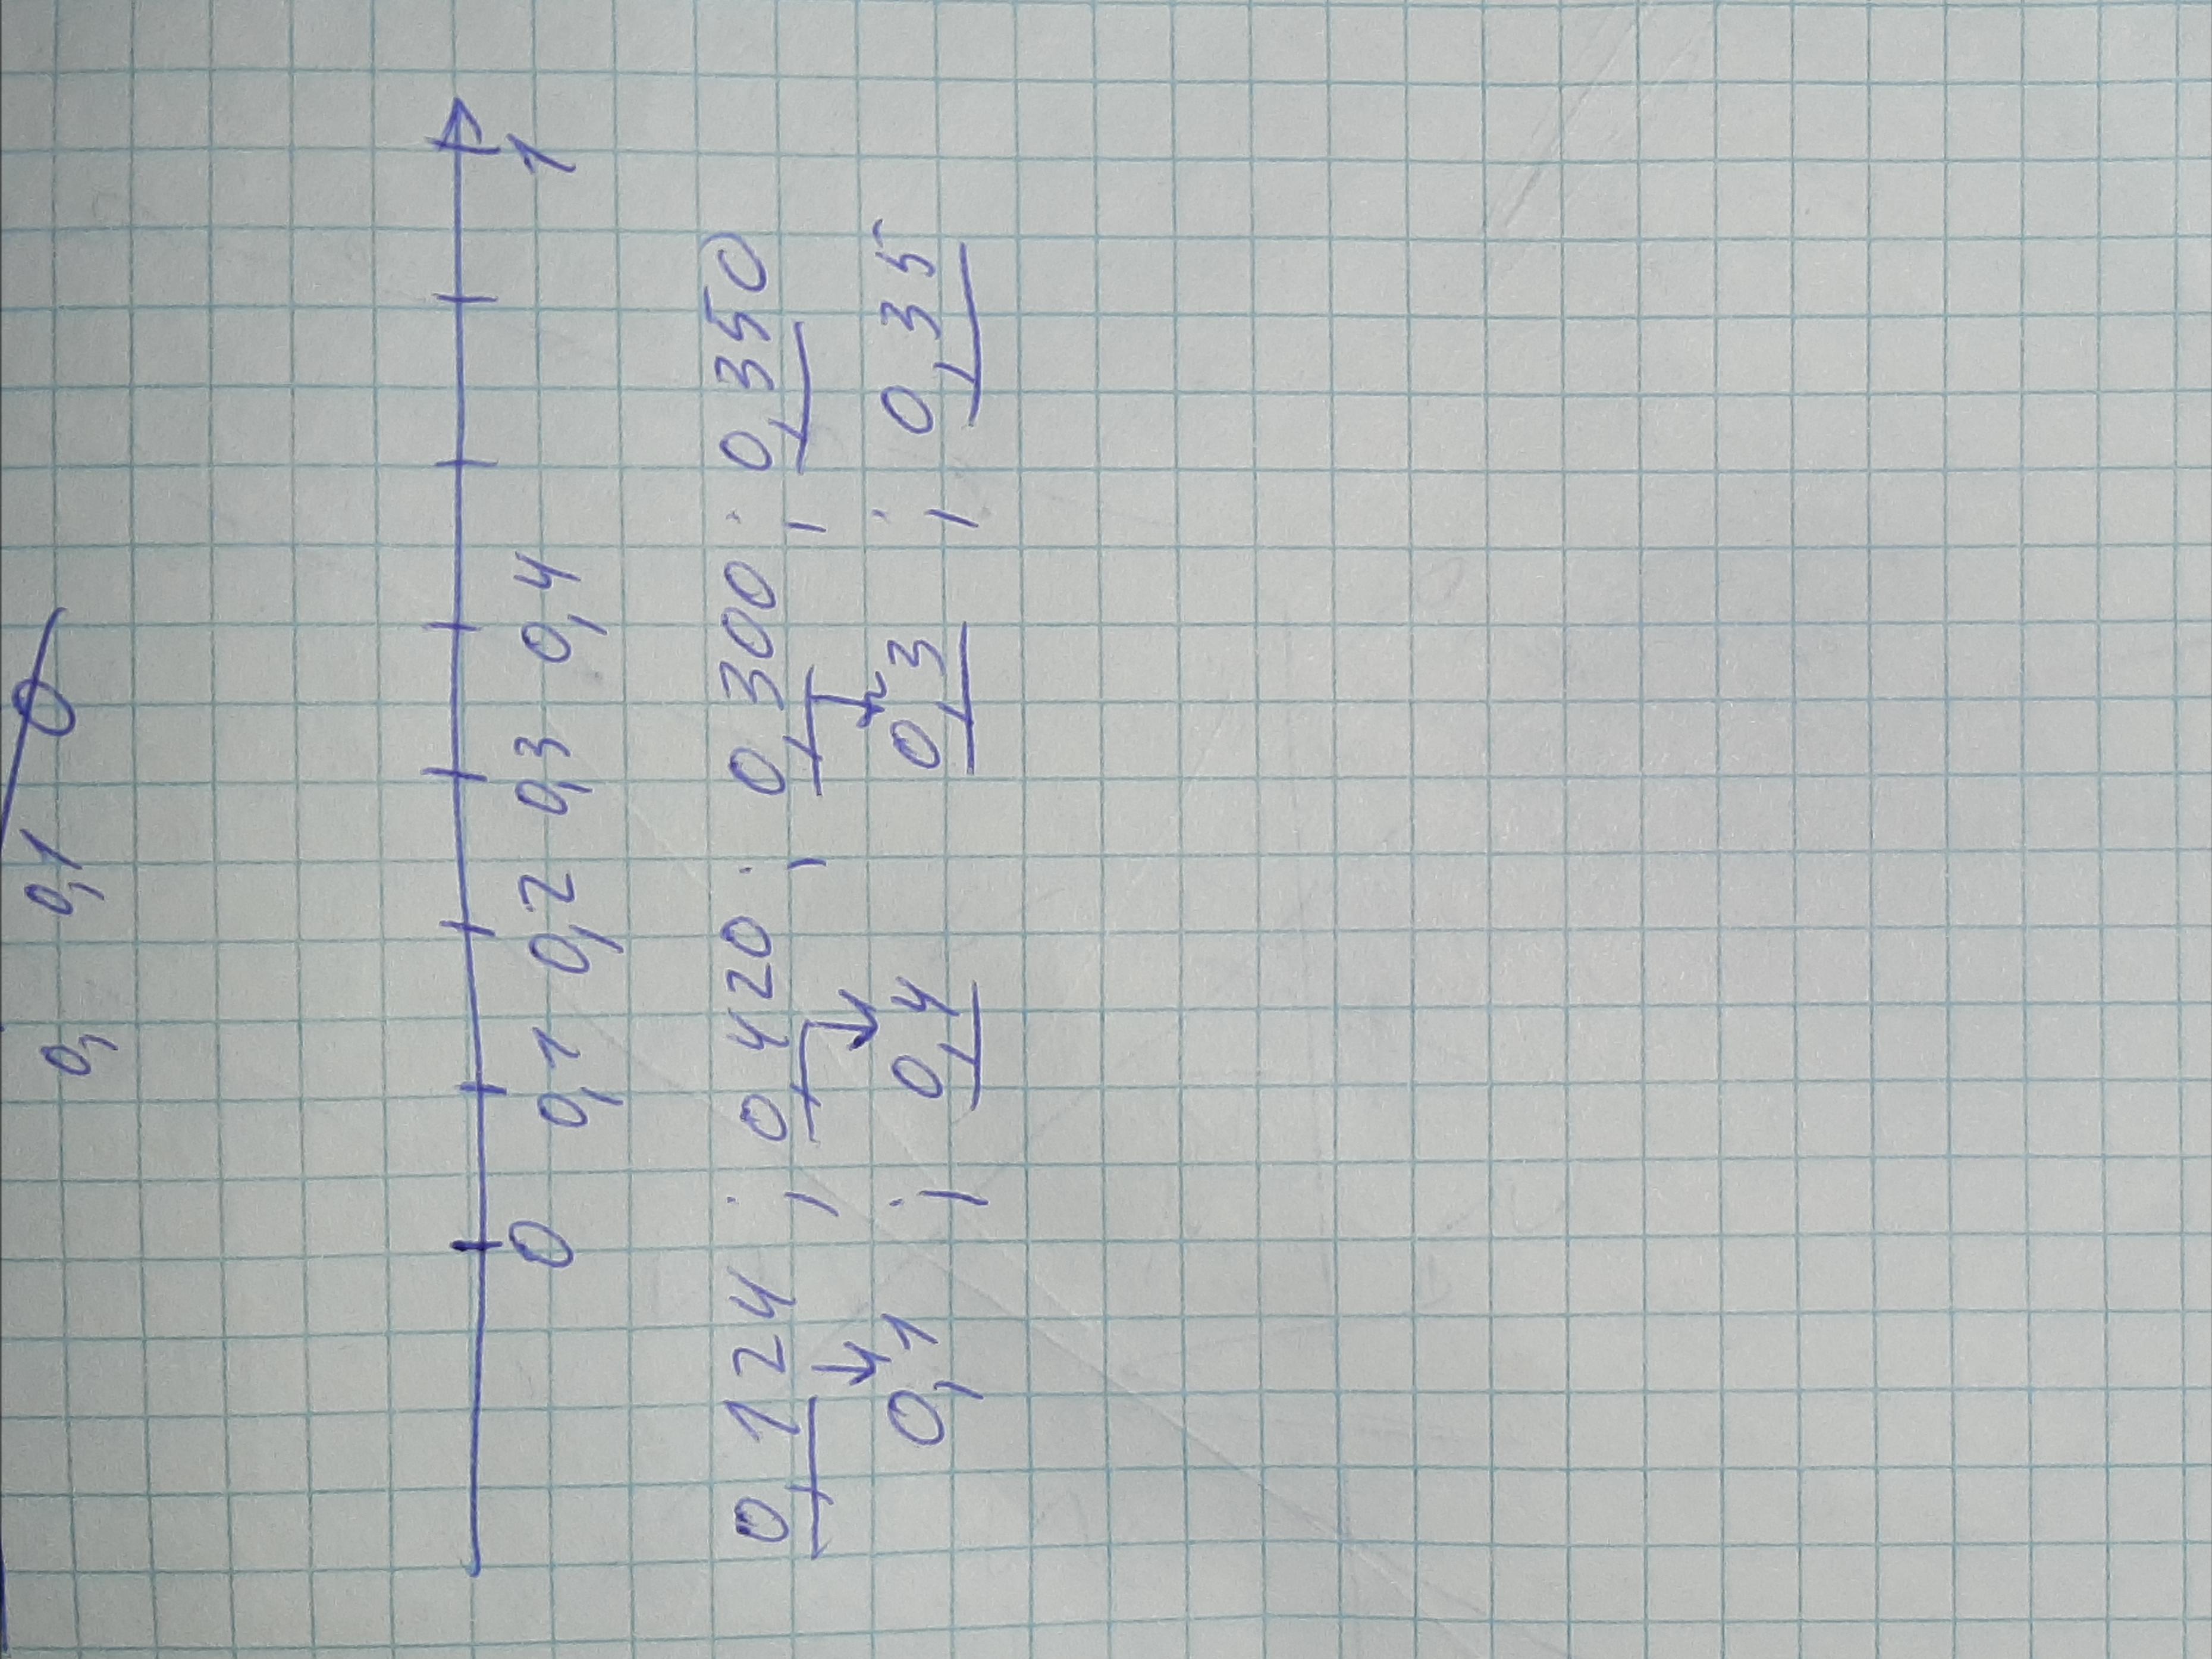 0, 0,1 0
0 0,1 0,2 0,3 0,4 1
0,124 ; 0,420 ; 0,300 ; 0,350
0,1 ; 0,4 0,3 ; 0,35